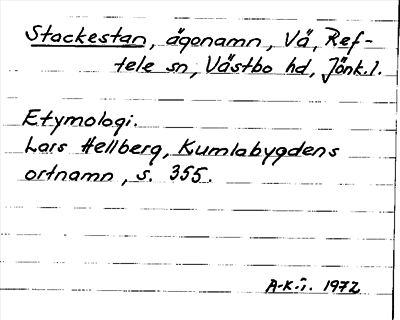 Stackestan, ägonamn, Vä, Ref-
tele sn, Västbo hd, Jönk.l.
Etymologi.
Lars Hellberg, Kumlabygdens
ortnamn, s. 355.
A-K.i. 1972